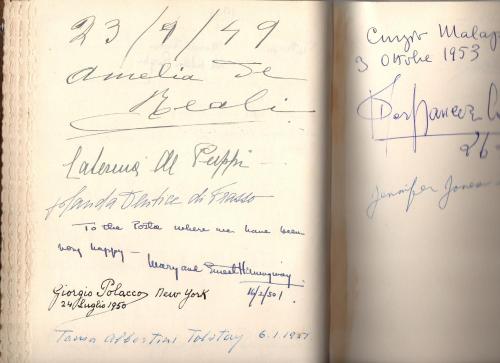 23/9/49
Amelia De
Reali
Caterina de Puppi
Jolanda Dentice di Frasso
To the Posta where we have been
very happy -
Mary and Ernest Hemingway
16/2/50
Giorgio Polacco New York
24 Luglio 1950
Tania Albertini Tolstoy 6.1.1951
Curzio Malap
3 Ottobre 1953
26
Jennifer Jones